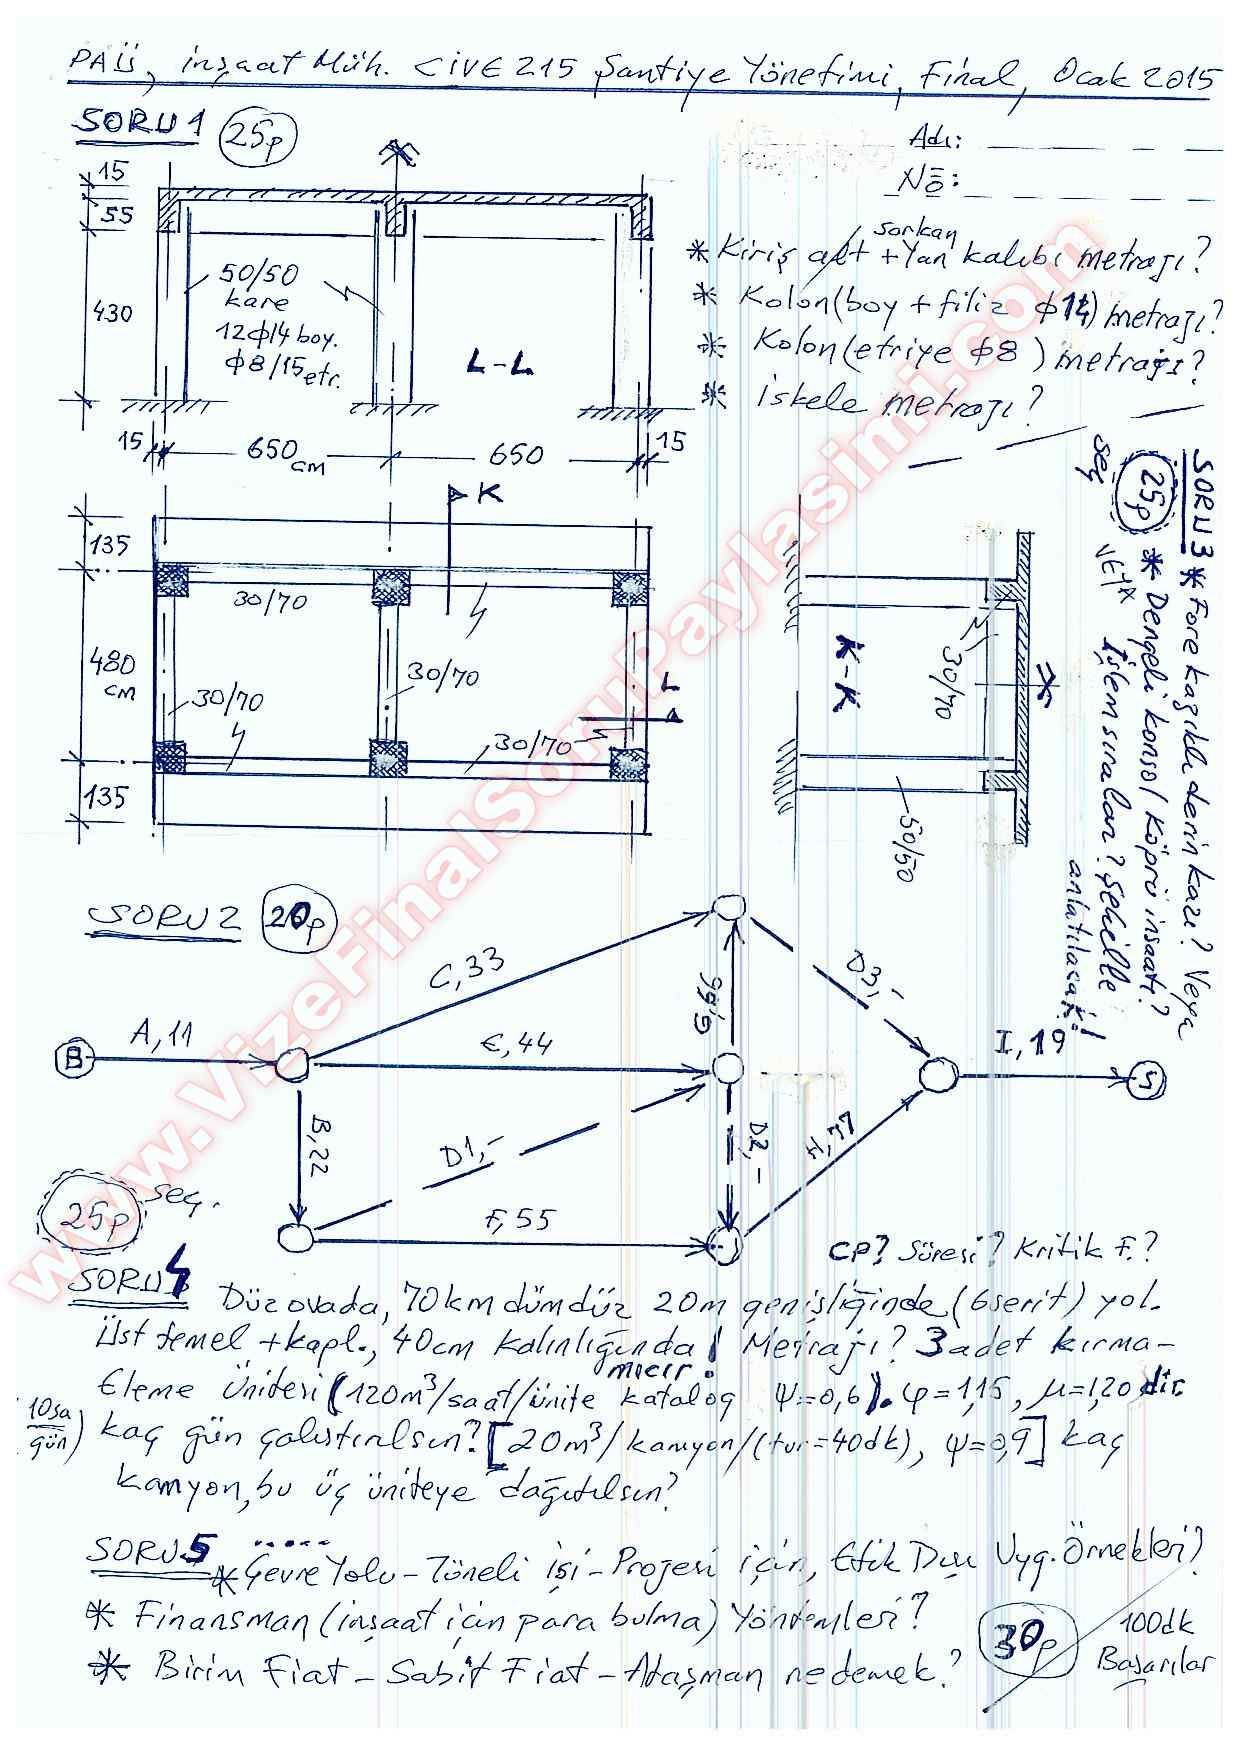 PAÜ, inşaat Müh. CIVE 215 Şantiye Yönetimi, Final, Ocak 2015
SORU 1 25p
Adı:
No:
15
55
430
50/50
kare
12ϕ14 boy.
ϕ8/15 etr.
L-L
* Kiriş alt + sarkan Yan kalıbı metrajı?
* Kolon (boy + filiz ϕ14) metrajı?
* Kolon (etriye ϕ8) metrajı?
* iskele metrajı?
15 650 cm 650 15
K
135
30/70
480
cm
30/70
30/70
L
30/70
135
K-K
30/70
50/50
SORU 3 * Fore kazıklı derin kazı? Veya
25p * Dengeli konsol köprü inşaatı?
seç
VEYA
İşlem sıraları? Şekille
anlatılacak!
SORU 2 20p
C,33
D3,-
A,11
B
E,44
G,66
I,19
S
B,22
D1,-
D2,-
H,77
F,55
25p seç.
CP? Süresi? Kritik F.?
SORU 4 Düz ovada, 70 km dümdüz 20m genişliğinde (6şerit) yol.
Üst temel + kapl., 40cm kalınlığında! Metrajı? 3 adet kırma-
Eleme Ünitesi (120m³/saat/ünite katalog ψ=0,6). φ=1,15, μ=1,20 dir.
mıcır
10sa
gün)
kaç gün çalıştırılsın? [20m³/kamyon/(tur=40dk), ψ=0,9] kaç
kamyon, bu üç üniteye dağıtılsın?
SORU 5
* Çevre Yolu - Tüneli işi - Projesi için, Etik Dışı Uyg. Örnekleri?
* Finansman (inşaat için para bulma) Yöntemleri?
* Birim Fiat - Sabit Fiat - Ataşman ne demek?
30p
100dk
Başarılar
www.VizeFinalSoruPaylasimi.com